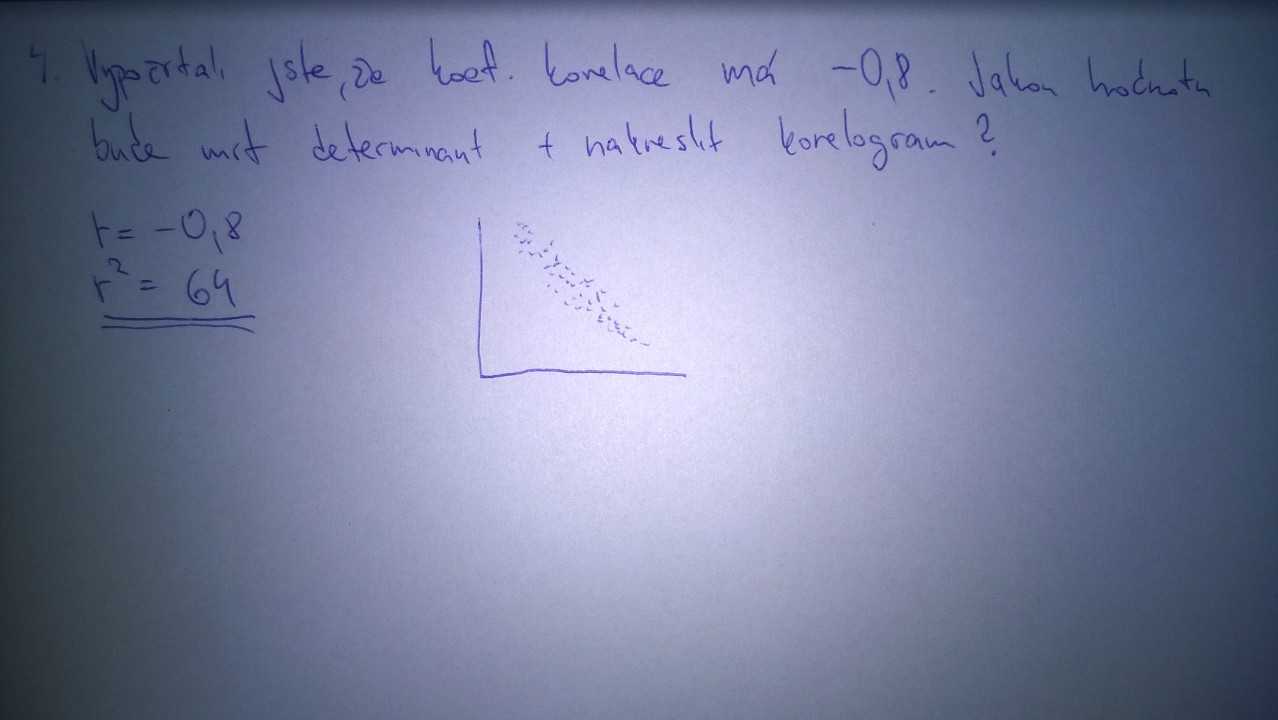 4. Vypočítali jste, že koef. korelace má -0,8. Jakou hodnotu
bude mít determinant + nakreslit korelogram?
r = -0,8
r² = 64